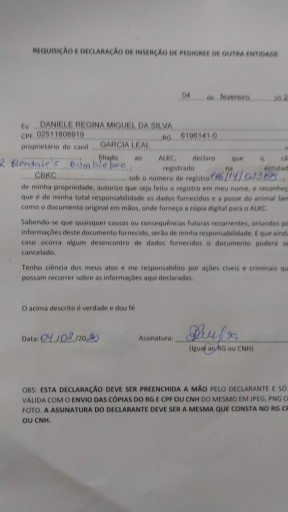 REQUISIÇÃO E DECLARAÇÃO DE INSERÇÃO DE PEDIGREE DE OUTRA ENTIDADE
04 de fevereiro 202
Eu DANIELE REGINA MIGUEL DA SILVA
CPF 02511808919 RG 6196141-0
proprietário do canil GARCIA LEAL
filiado ao ALKC, declaro que o cã
Blendale's Bumblebee, registrado na entidad
CBKC sob o número de registro
de minha propriedade, autorizo que seja feito o registro em meu nome, e reconheç
que é de minha total responsabilidade os dados fornecidos e a posse do animal be
como o documento original em mãos, onde forneço a cópia digital para o ALKC.
Sabendo-se que quaisquer causas ou consequências futuras recorrentes, oriundos po
informações deste documento fornecido, serão de minha responsabilidade. E que aind
caso ocorra algum desencontro de dados fornecidos o documento poderá se
cancelado.
Tenho ciência dos meus atos e me responsabilizo por ações cíveis e criminais qu
possam recorrer sobre as informações aqui declaradas.
O acima descrito é verdade e dou fé
Data: 04/02/2020 Assinatura:
(Igual ao RG ou CNH)
OBS: ESTA DECLARAÇÃO DEVE SER PREENCHIDA A MÃO PELO DECLARANTE E SÓ
VÁLIDA COM O ENVIO DAS CÓPIAS DO RG E CPF OU CNH DO MESMO EM JPEG, PNG O
FOTO. A ASSINATURA DO DECLARANTE DEVE SER A MESMA QUE CONSTA NO RG C
OU CNH.